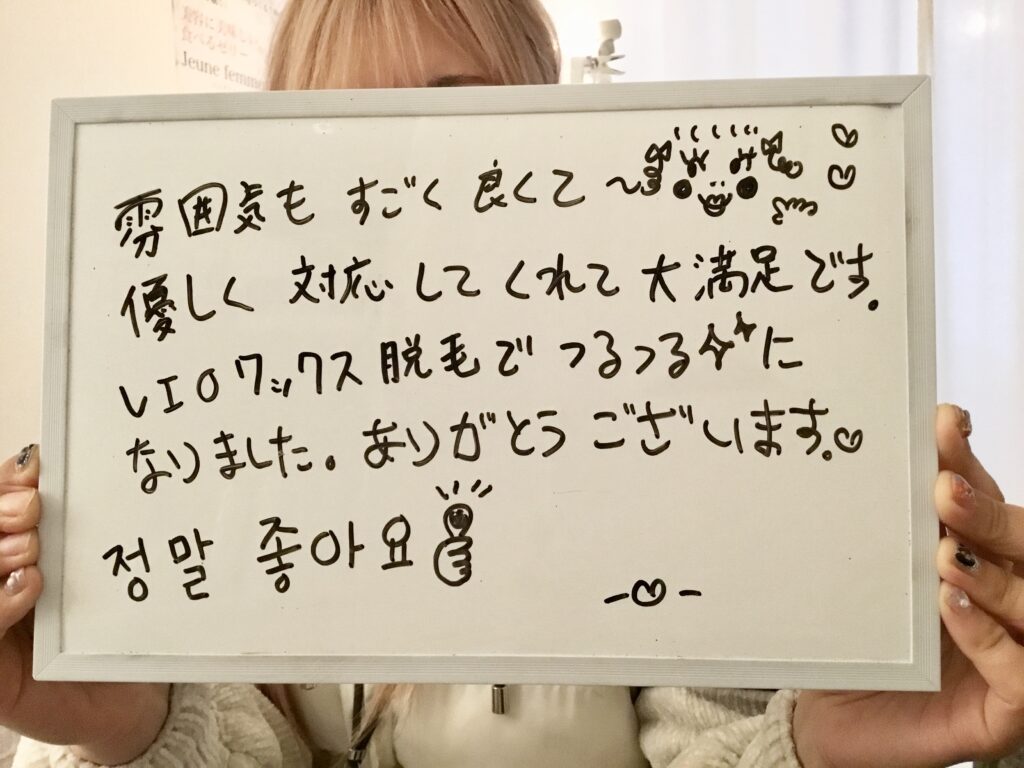 食べるゼリー
Jeune femme
雰囲気も すごく 良くて〜
優しく 対応してくれて大満足です。
VIOワックス脱毛で つるつるに
なりました。ありがとう ございます。♡
정말 좋아요